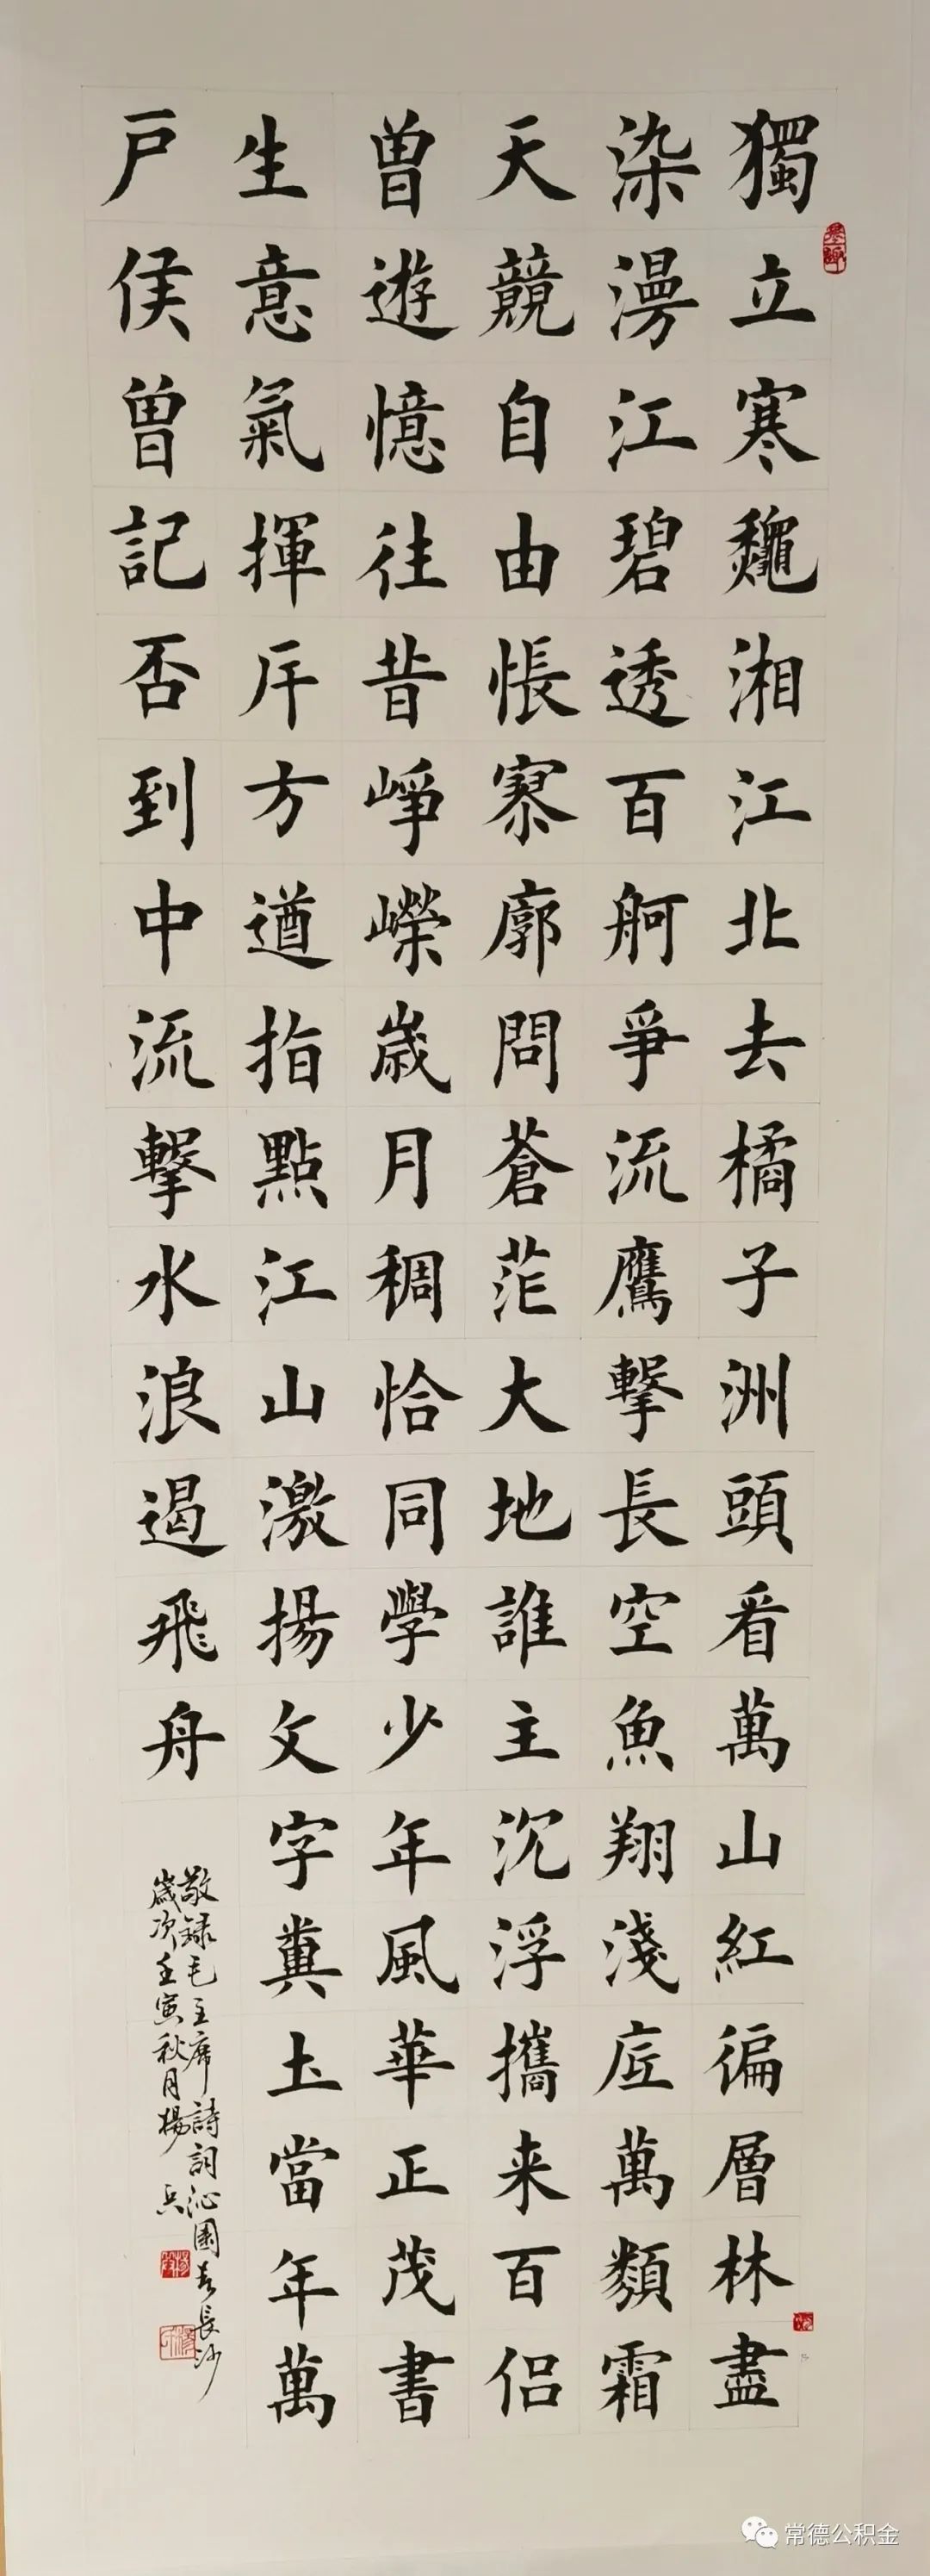 獨立寒龝湘江北去橘子洲頭看萬山紅徧層林盡
染漫江碧透百舸爭流鷹擊長空魚翔淺底萬類霜
天競自由悵寥廓問蒼茫大地誰主沉浮攜来百侣
曾遊憶往昔崢嶸歲月稠恰同學少年風華正茂書
生意氣揮斥方遒指點江山激揚文字糞土當年萬
戶侯曾記否到中流擊水浪遏飛舟
敬録毛主席詩詞沁園春長沙
歲次壬寅秋月楊兵
常德公积金